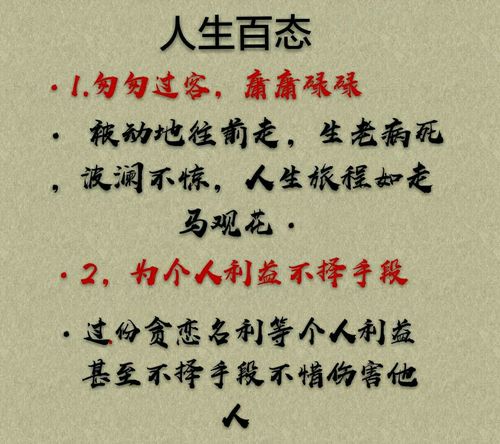 人生百态
·1.匆匆过客，庸庸碌碌
· 被动地往前走，生老病死
，波澜不惊，人生旅程如走
马观花·
·2，为个人利益不择手段
·过份贪恋名利等个人利益
甚至不择手段不惜伤害他
人